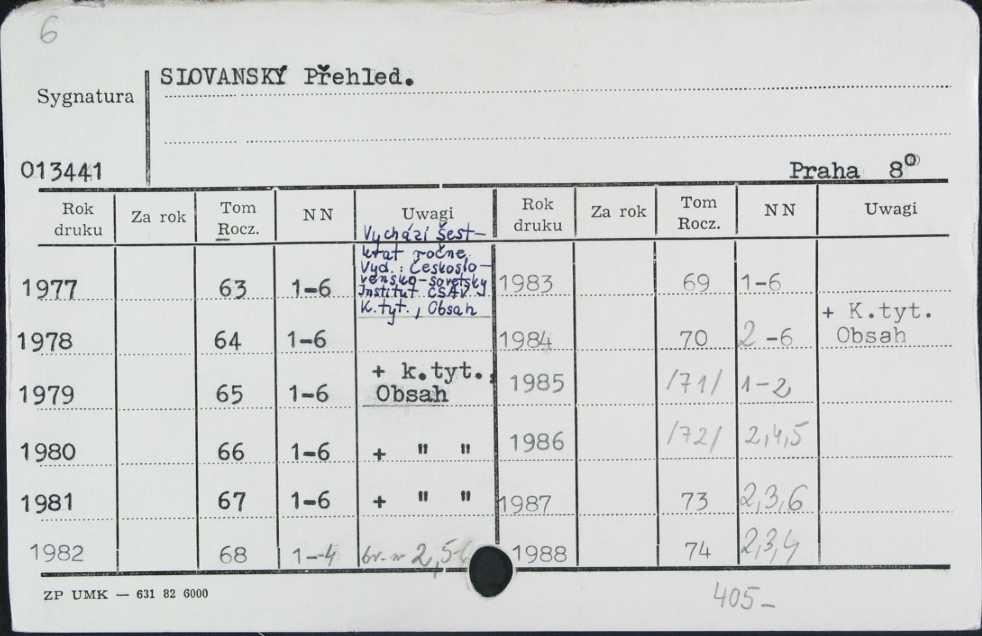 6
SLOVANSKÝ Přehled.
Sygnatura
013441
Praha 8º
Rok druku Za rok Tom Rocz. NN Uwagi Rok druku Za rok Tom Rocz. NN Uwagi
Vychází šest-
krát ročně,
Vyd.: Českoslo-
vensko-sovětský
Institut ČSAV
K.tyt., Obsah
1977 63 1-6 1983 69 1-6
+ K.tyt.
Obsah
1978 64 1-6 1984 70 2-6
+ k.tyt.,
Obsah
1979 65 1-6 1985 /71/ 1-2
1980 66 1-6 + " " 1986 /72/ 2,4,5
1981 67 1-6 + " " 1987 73 2,3,6
1982 68 1--4 1988 74 2,3,4
ZP UMK — 631 82 6000
405-